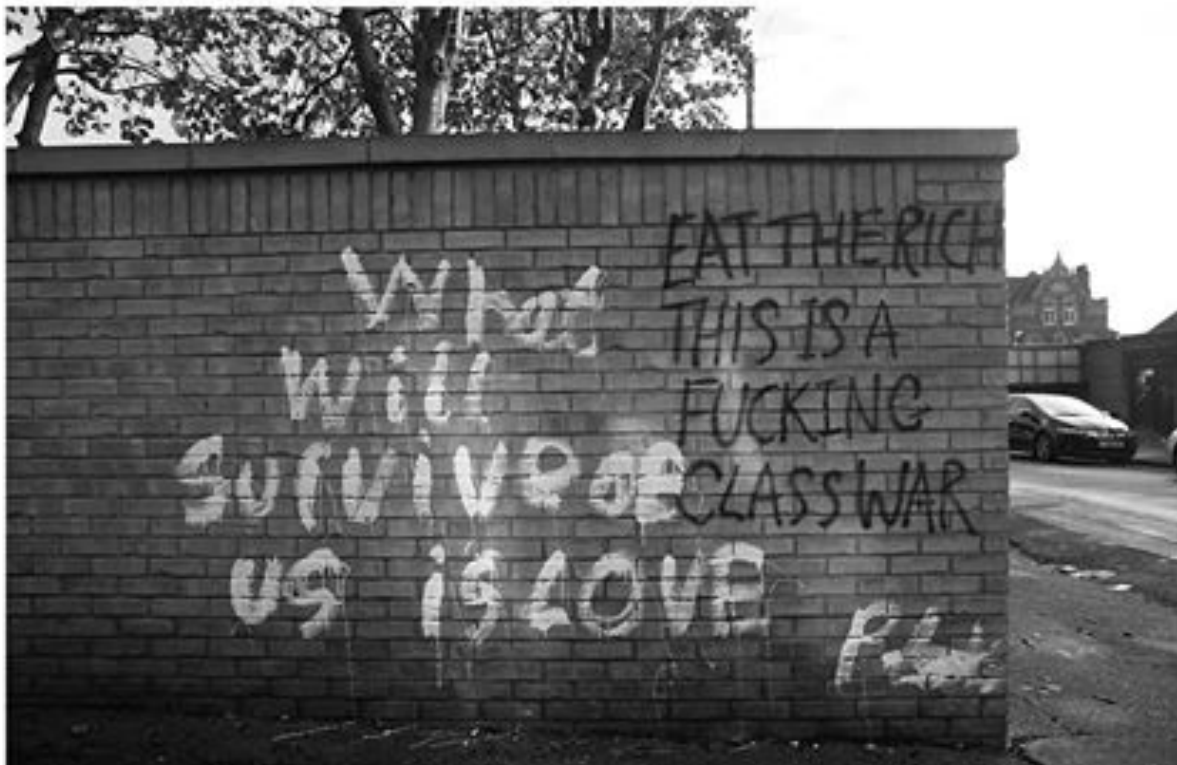 What
Will
Survive of
us is LOVE
EAT THE RICH
THIS IS A
FUCKING
CLASS WAR